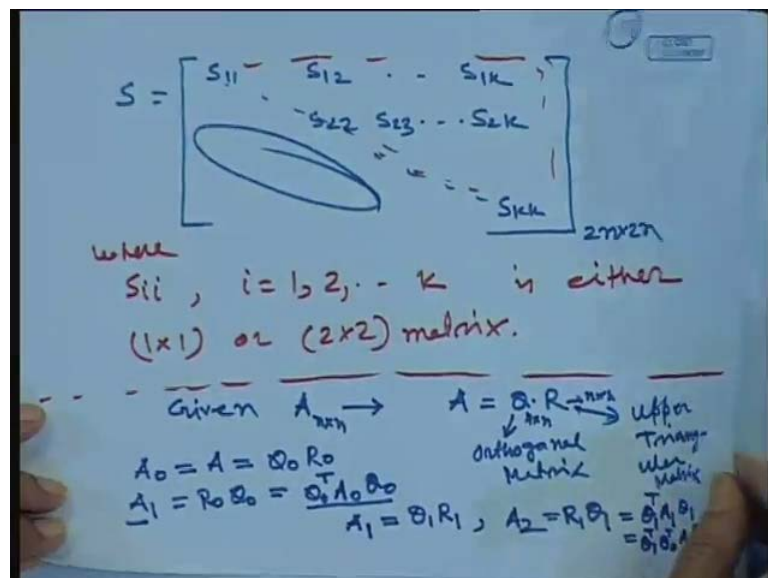 S =
S11 S12 . . S1k
S22 S23 . . . S2k
Skk
2n×2n
where
Sii , i = 1, 2, . . k is either
(1×1) or (2×2) matrix.
Given A n×n → A = Q . R → n×n
n×n
Orthogonal Matrix
Upper Triang- ular Matrix
A0 = A = Q0 R0
A1 = R0 Q0 = Q0^T A0 Q0
A1 = Q1 R1 , A2 = R1 Q1 = Q1^T A1 Q1
= Q1^T Q0^T A